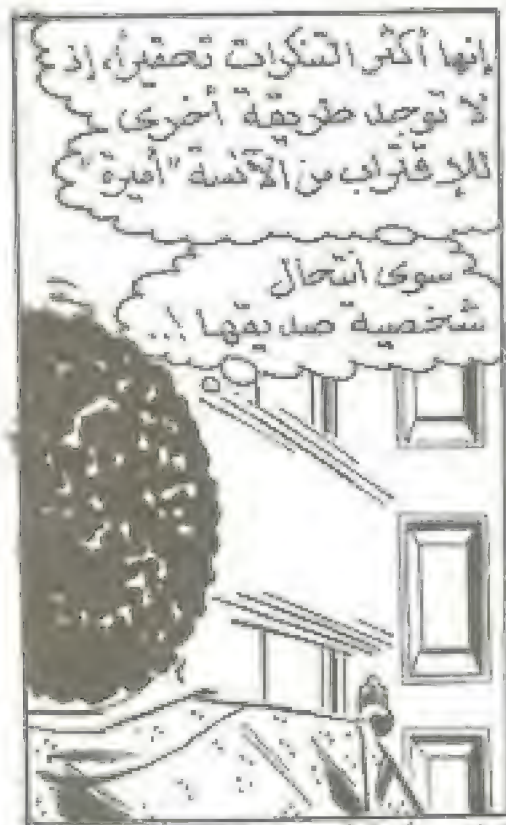 إنها أكثر التنكرات تحقيراً، إذ
لا توجد طريقة أخرى
للإقتراب من الآنسة "أميرة"
سوى انتحال
شخصية صديقها !..